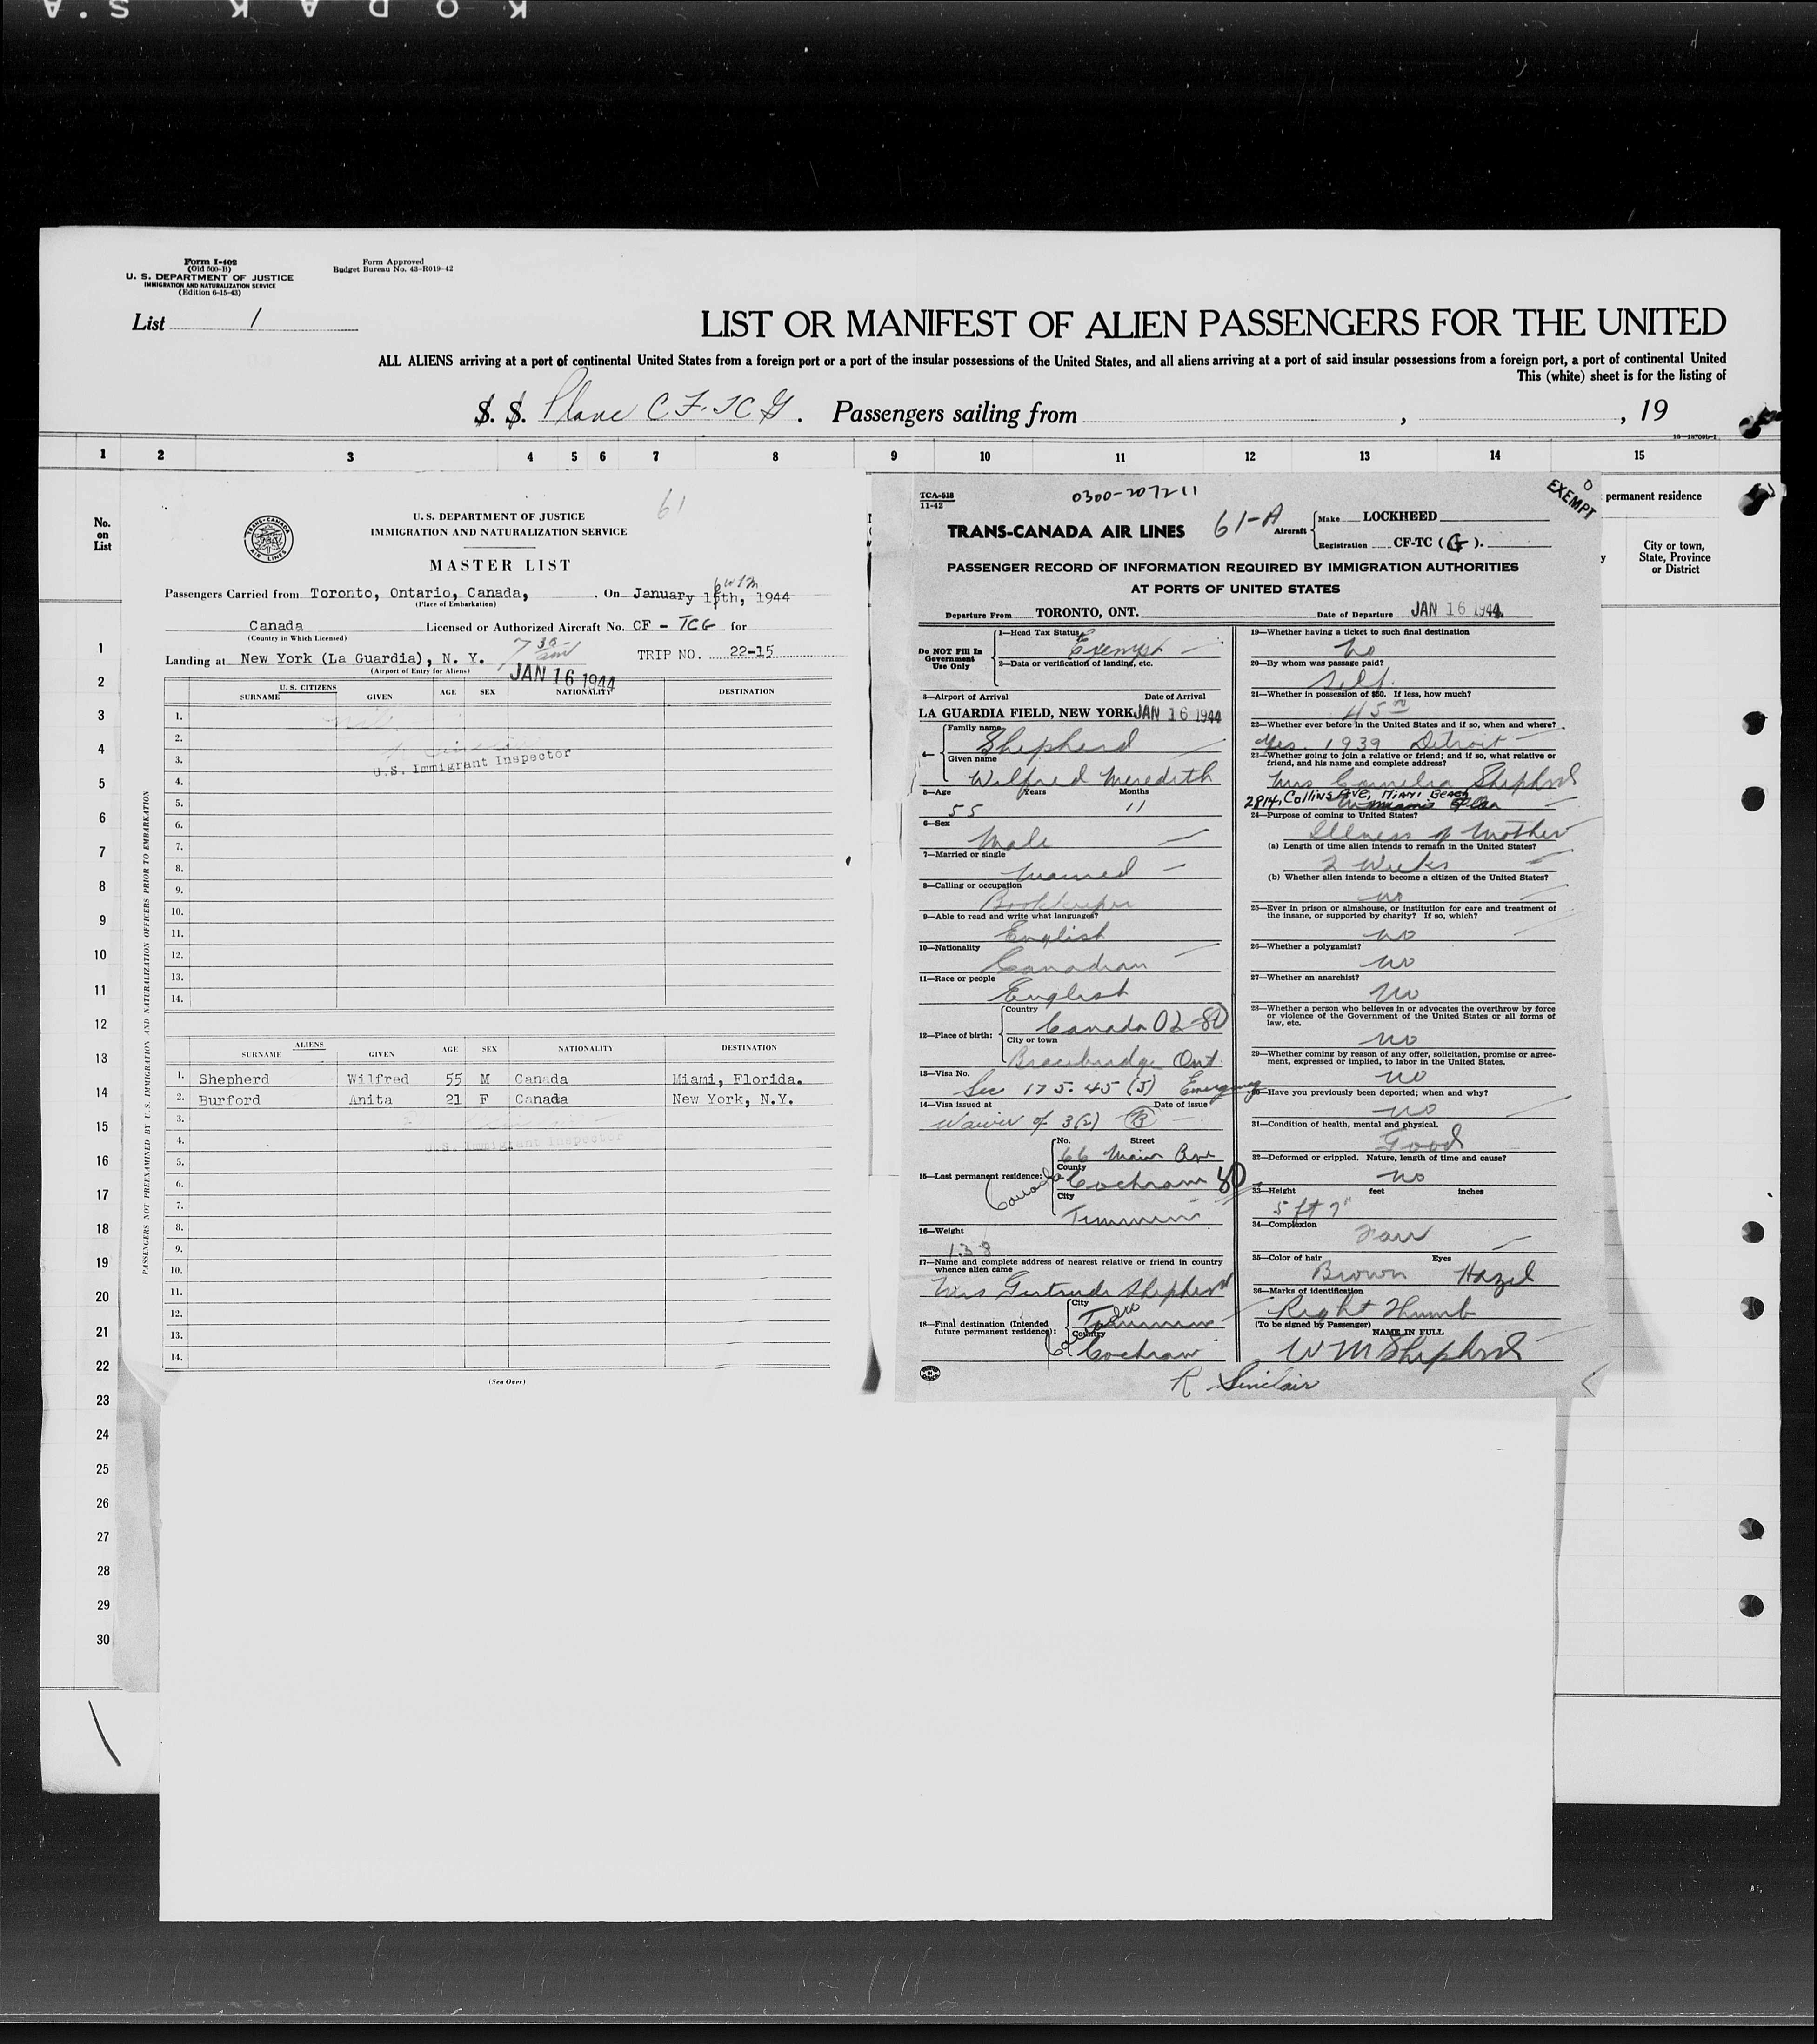 KODAK S.A
Form I-402
(Old 500-B)
U. S. DEPARTMENT OF JUSTICE
IMMIGRATION AND NATURALIZATION SERVICE
(Edition 6-15-43)
Form Approved
Budget Bureau No. 43-R019-42
List 1
LIST OR MANIFEST OF ALIEN PASSENGERS FOR THE UNITED
ALL ALIENS arriving at a port of continental United States from a foreign port or a port of the insular possessions of the United States, and all aliens arriving at a port of said insular possessions from a foreign port, a port of continental United
This (white) sheet is for the listing of
S. S. Plane CF.TCG. Passengers sailing from , , 19
1 2 3 4 5 6 7 8 9 10 11 12 13 14 15
No. on List
permanent residence
City or town, State, Province or District
1
2
3
4
5
6
7
8
9
10
11
12
13
14
15
16
17
18
19
20
21
22
23
24
25
26
27
28
29
30
61
TRANS-CANADA AIR LINES
U. S. DEPARTMENT OF JUSTICE
IMMIGRATION AND NATURALIZATION SERVICE
MASTER LIST
Passengers Carried from Toronto, Ontario, Canada, . On January 15th, 1944
(Place of Embarkation)
Canada Licensed or Authorized Aircraft No. CF - TCG for
(Country in Which Licensed)
Landing at New York (La Guardia), N. Y. 7 30 am TRIP NO. 22-15
(Airport of Entry for Aliens)
JAN 16 1944
U.S. CITIZENS
SURNAME GIVEN AGE SEX NATIONALITY DESTINATION
1.
2.
3.
U.S. Immigrant Inspector
4.
5.
6.
7.
8.
9.
10.
11.
12.
13.
14.
ALIENS
SURNAME GIVEN AGE SEX NATIONALITY DESTINATION
1. Shepherd Wilfred 55 M Canada Miami, Florida.
2. Burford Anita 21 F Canada New York, N.Y.
3.
4.
U.S. Immigrant Inspector
5.
6.
7.
8.
9.
10.
11.
12.
13.
14.
(See Over)
PASSENGERS NOT PREEXAMINED BY U.S. IMMIGRATION AND NATURALIZATION OFFICERS PRIOR TO EMBARKATION
TCA-518
11-42
0300-207211
EXEMPT
TRANS-CANADA AIR LINES 61-A
Aircraft Make LOCKHEED
Registration CF-TC (G).
PASSENGER RECORD OF INFORMATION REQUIRED BY IMMIGRATION AUTHORITIES
AT PORTS OF UNITED STATES
Departure From TORONTO, ONT. Date of Departure JAN 16 1944
Do NOT Fill In Government Use Only
1—Head Tax Status Exempt
2—Data or verification of landing, etc.
3—Airport of Arrival Date of Arrival
LA GUARDIA FIELD, NEW YORK JAN 16 1944
4— Family name Shepherd
Given name Wilfred Meredith
5—Age Years Months
55 11
6—Sex
Male
7—Married or single
Married
8—Calling or occupation
Bookkeeper
9—Able to read and write what languages?
English
10—Nationality
Canadian
11—Race or people
English
12—Place of birth: Country
Canada 02-80
City or town
Bracebridge Ont.
13—Visa No.
Sec 175.45 (J) Emergency
14—Visa issued at Date of issue
Waiver of 3(2) B
15—Last permanent residence: No. Street
66 Main Ave
County
Canada Cochrane 80
City
Timmins
16—Weight
138
17—Name and complete address of nearest relative or friend in country whence alien came
Mrs Gertrude Shepherd
18—Final destination (Intended future permanent residence): City
Timmins
Country
Cochrane
19—Whether having a ticket to such final destination
No
20—By whom was passage paid?
Self.
21—Whether in possession of $50. If less, how much?
45 00
22—Whether ever before in the United States and if so, when and where?
Yes. 1939 Detroit
23—Whether going to join a relative or friend; and if so, what relative or friend, and his name and complete address?
Mrs Cornelia Shepherd
2814, Collins Ave, Miami Beach
24—Purpose of coming to United States?
Illness of Mother
(a) Length of time alien intends to remain in the United States?
2 Weeks
(b) Whether alien intends to become a citizen of the United States?
no
25—Ever in prison or almshouse, or institution for care and treatment of the insane, or supported by charity? If so, which?
no
26—Whether a polygamist?
no
27—Whether an anarchist?
no
28—Whether a person who believes in or advocates the overthrow by force or violence of the Government of the United States or all forms of law, etc.
no
29—Whether coming by reason of any offer, solicitation, promise or agreement, expressed or implied, to labor in the United States.
no
30—Have you previously been deported; when and why?
no
31—Condition of health, mental and physical.
Good
32—Deformed or crippled. Nature, length of time and cause?
no
33—Height feet inches
5 ft 7"
34—Complexion
Fair
35—Color of hair Eyes
Brown Hazel
36—Marks of identification
Right Thumb
(To be signed by Passenger)
NAME IN FULL
W M Shepherd
R Sinclair